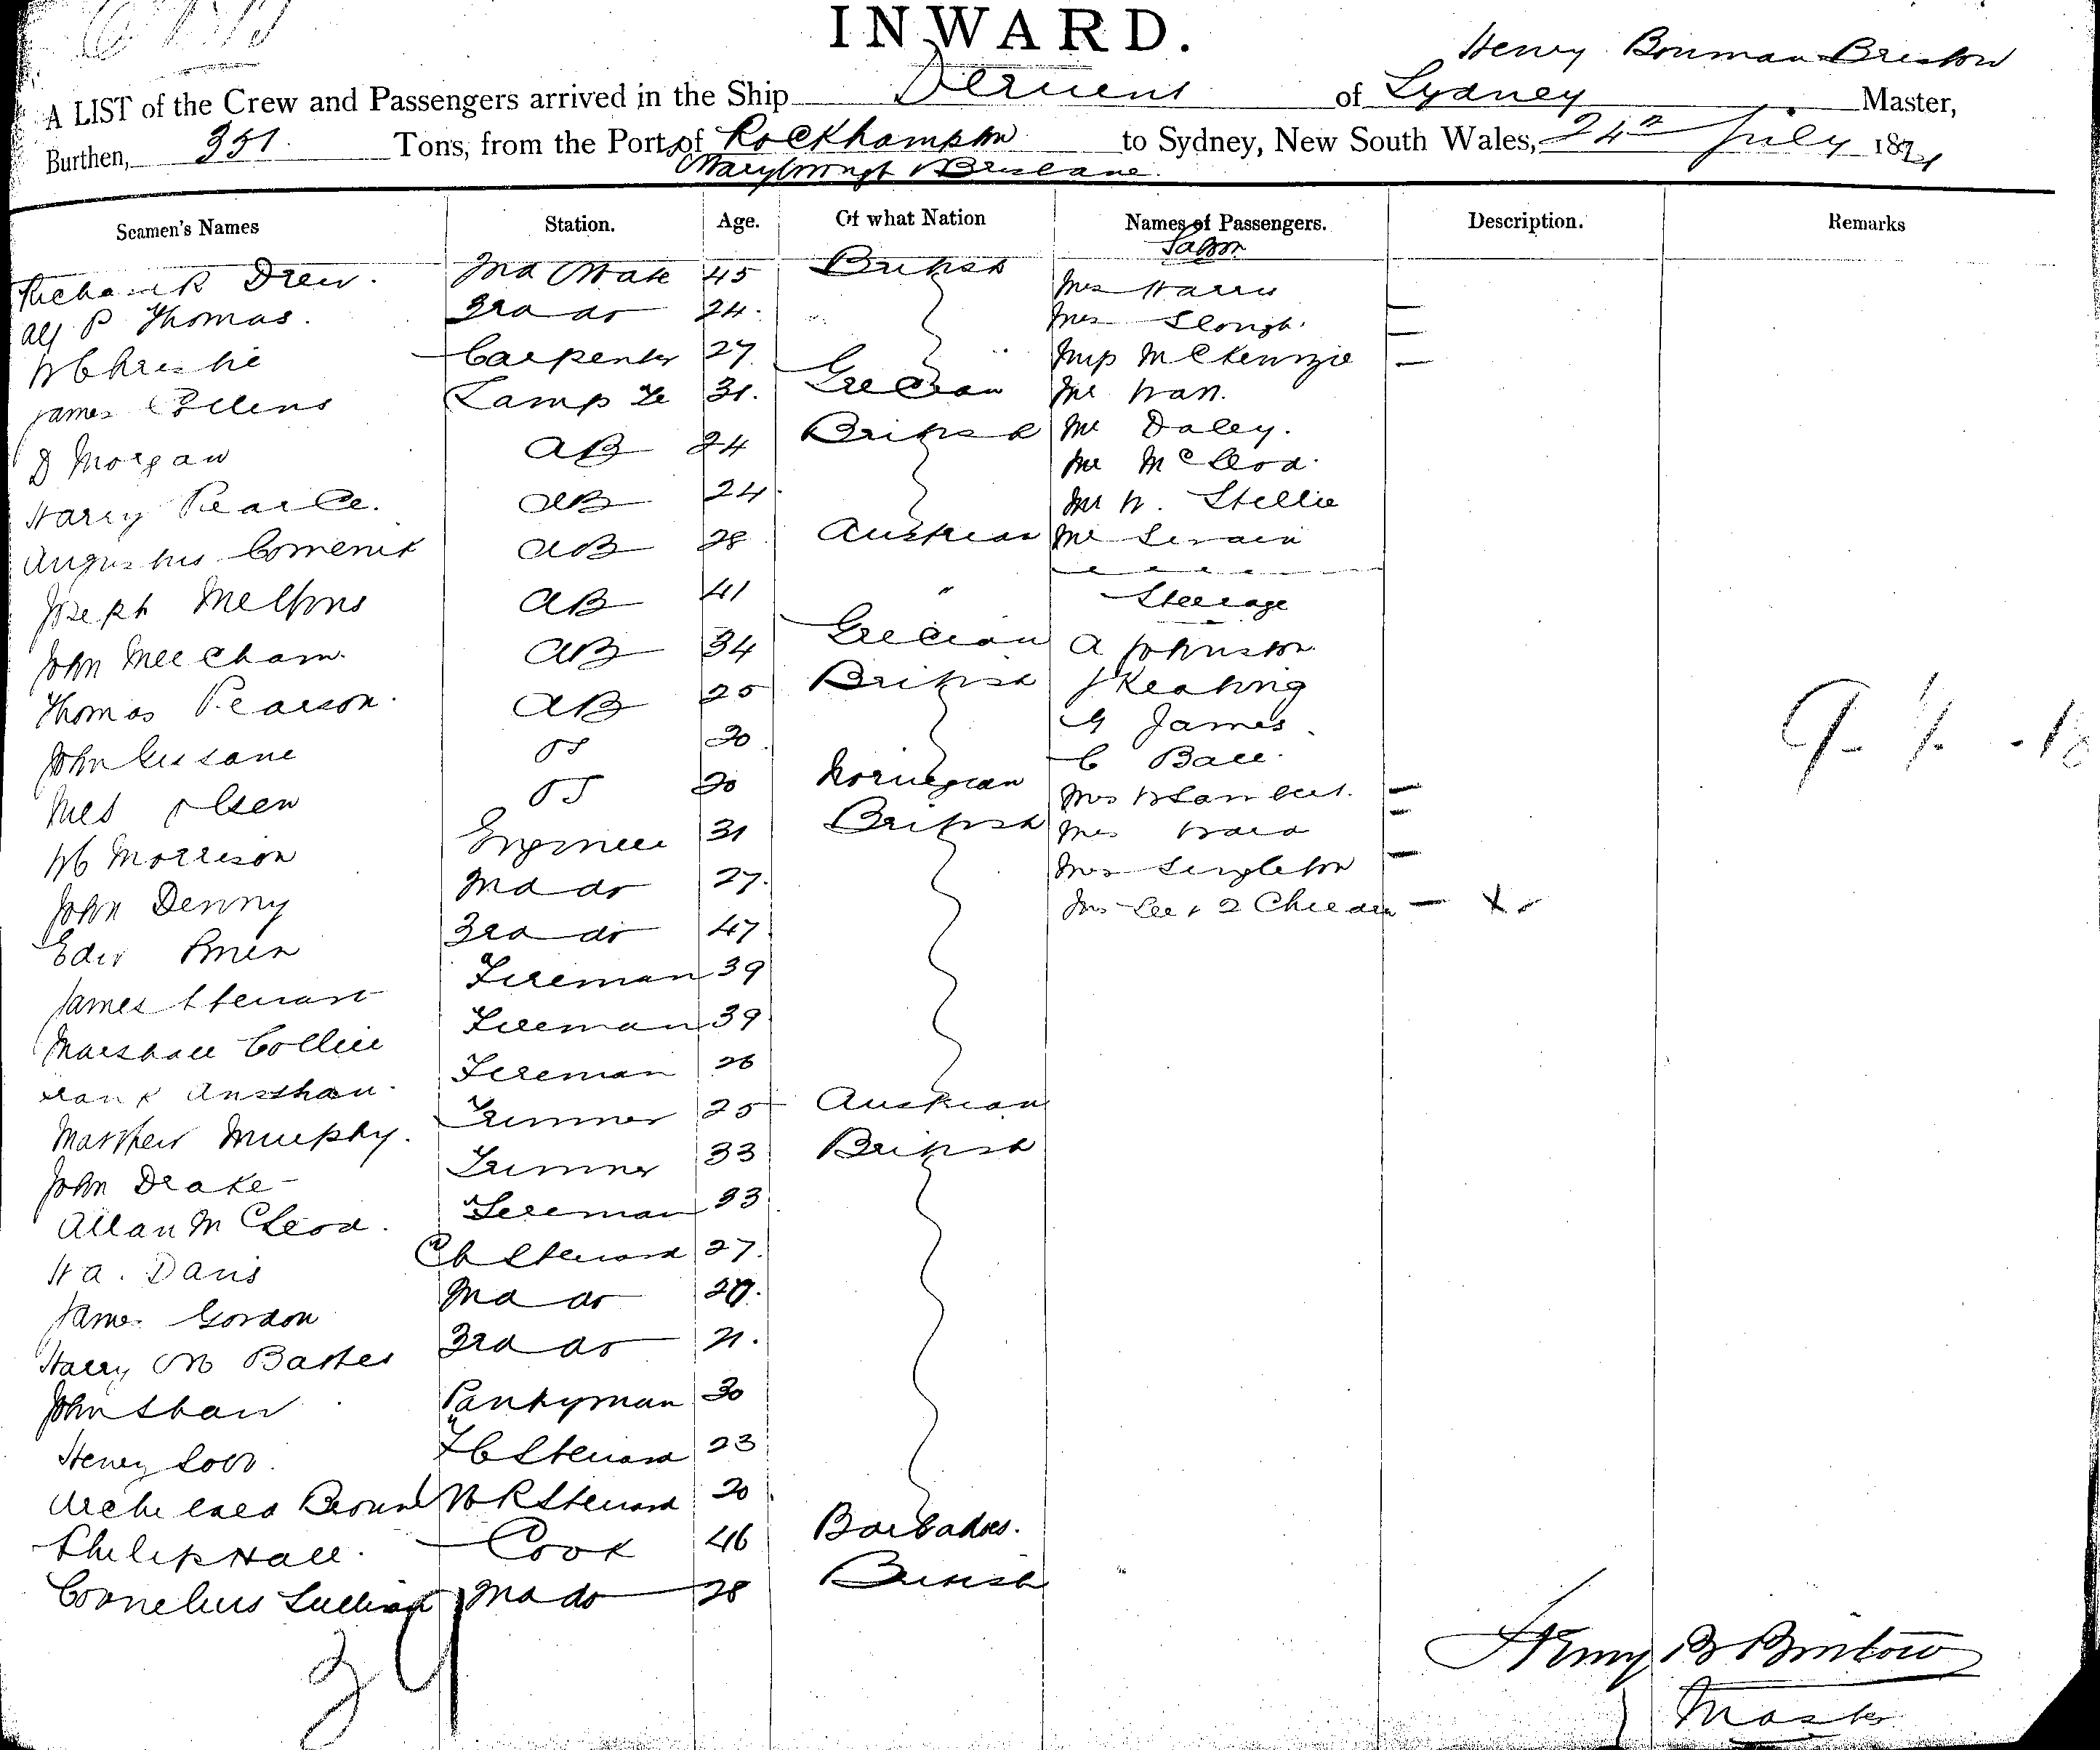 INWARD.
Henry Bowman Bristow
A LIST of the Crew and Passengers arrived in the Ship Derwent of Sydney Master,
Burthen, 351. Tons, from the Port of Rockhampton to Sydney, New South Wales, 24th July 18
Maryborough & Brisbane.
Seamen's Names Station. Age. Of what Nation Names of Passengers. Description. Remarks
Saloon
Richard Drew. 2nd Mate 45 British Mrs Harris
Alf P Thomas. 3rd do 24. Mrs Clough. —
W Christie Carpenter 27 Miss McKenzie —
James Collins Lamp Tr 31. Grecian Mr
D Morgan AB 24 British Mr Daley.
Mr McLeod.
Harry Pearce. AB 24. Mr W. Stellie
Augustus Comenik AB 28 Austrian Mr
Joseph AB 41 " Steerage
John Meecham. AB 34 Grecian A Johnston
Thomas Pearson. AB 25 British J Keating
G James
John OS 20 C Ball.
Olsen OS 20 Norwegian Mrs W Lambert. —
W C Morrison Engineer 31 British Mrs Ward —
Mrs Singleton —
John Denny 2nd do 27. Mrs Lee & 2 Children — X
Edw 3rd do 47
James Stewart Fireman 39
Marshall Collier Fireman 39
Frank Fireman 26
Matthew Murphy. Trimmer 25 Austrian
John Drake Trimmer 33 British
Allan McLeod. Fireman 33
H A. Davis Ch Steward 27.
James Gordon 2nd do 29.
Harry M 3rd do 21.
John Shaw Pantryman 30
Henry F C Steward 23
Brown B R Steward 20
Philip Hall. Cook 46 Barbados.
Cornelius Sullivan 2nd do 28 British
Henry B Bristow
Master